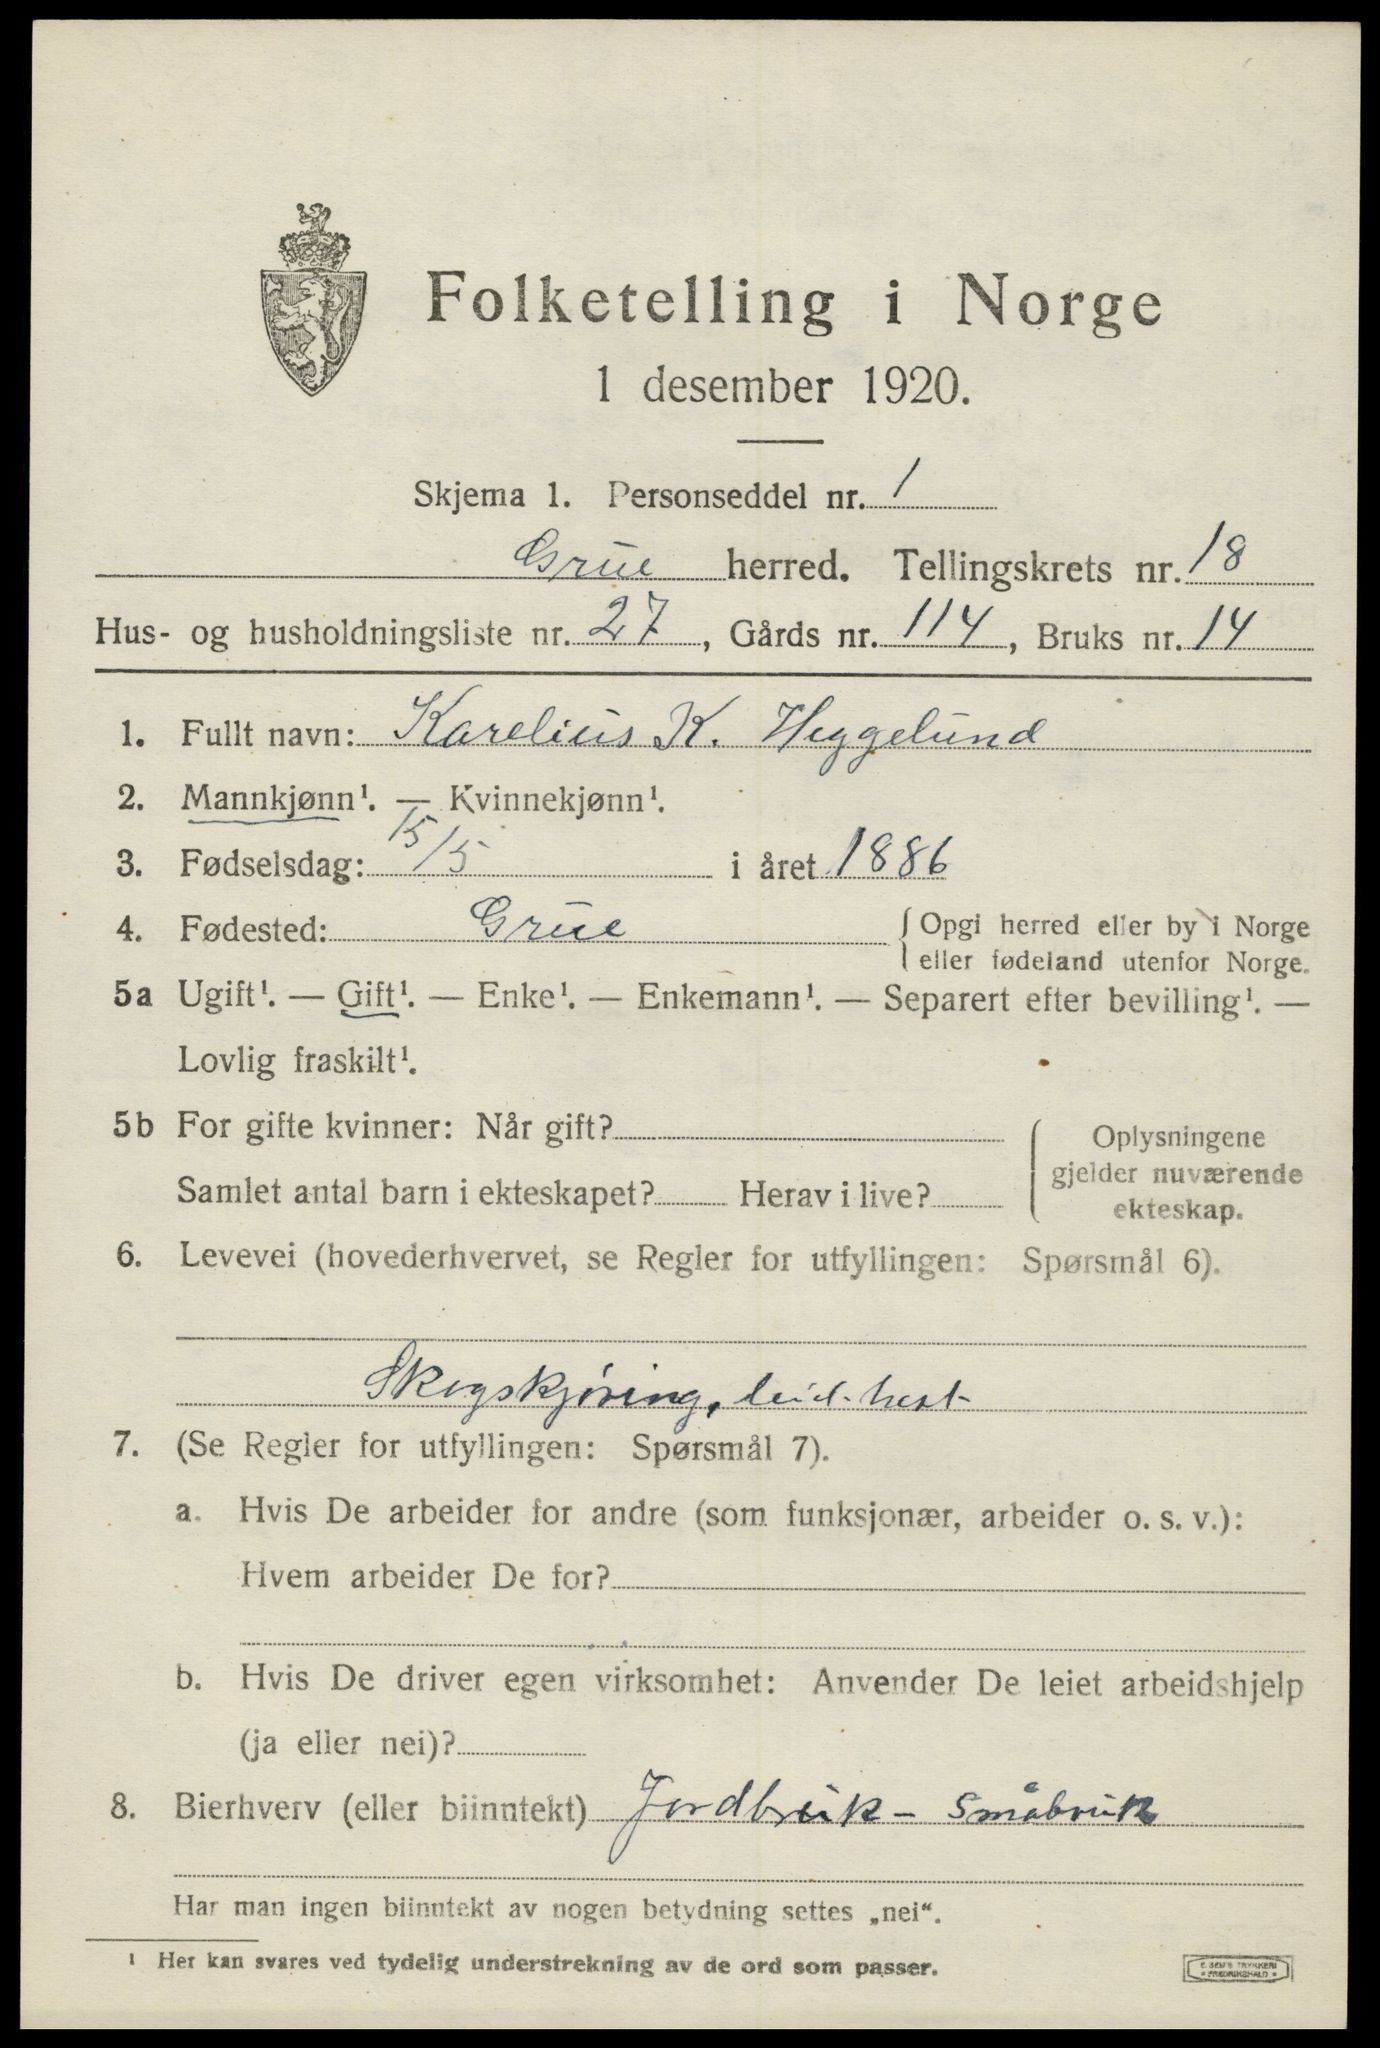 Folketelling i Norge
1 desember 1920.
Skjema 1. Personseddel nr. 1
Grue herred. Tellingskrets nr. 18
Hus- og husholdningsliste nr. 27, Gårds nr. 114, Bruks nr. 14
1. Fullt navn: Karelius K. Heggelund
2. Mannkjønn¹. — Kvinnekjønn¹.
3. Fødselsdag: 15/5 i året 1886
4. Fødested: Grue { Opgi herred eller by i Norge
eller fødeland utenfor Norge.
5a Ugift¹. — Gift¹. — Enke¹. — Enkemann¹. — Separert efter bevilling¹. —
Lovlig fraskilt¹.
5b For gifte kvinner: Når gift?
Samlet antal barn i ekteskapet? Herav i live?
Oplysningene
gjelder nuværende
ekteskap.
6. Levevei (hovederhvervet, se Regler for utfyllingen: Spørsmål 6).
Skogskjøring, leid hest
7. (Se Regler for utfyllingen: Spørsmål 7).
a. Hvis De arbeider for andre (som funksjonær, arbeider o. s. v.):
Hvem arbeider De for?
b. Hvis De driver egen virksomhet: Anvender De leiet arbeidshjelp
(ja eller nei)?
8. Bierhverv (eller biinntekt) Jordbruk - Småbruk
Har man ingen biinntekt av nogen betydning settes „nei“.
¹ Her kan svares ved tydelig understrekning av de ord som passer.
E. SEM'S TRYKKERI
FREDRIKSHALD